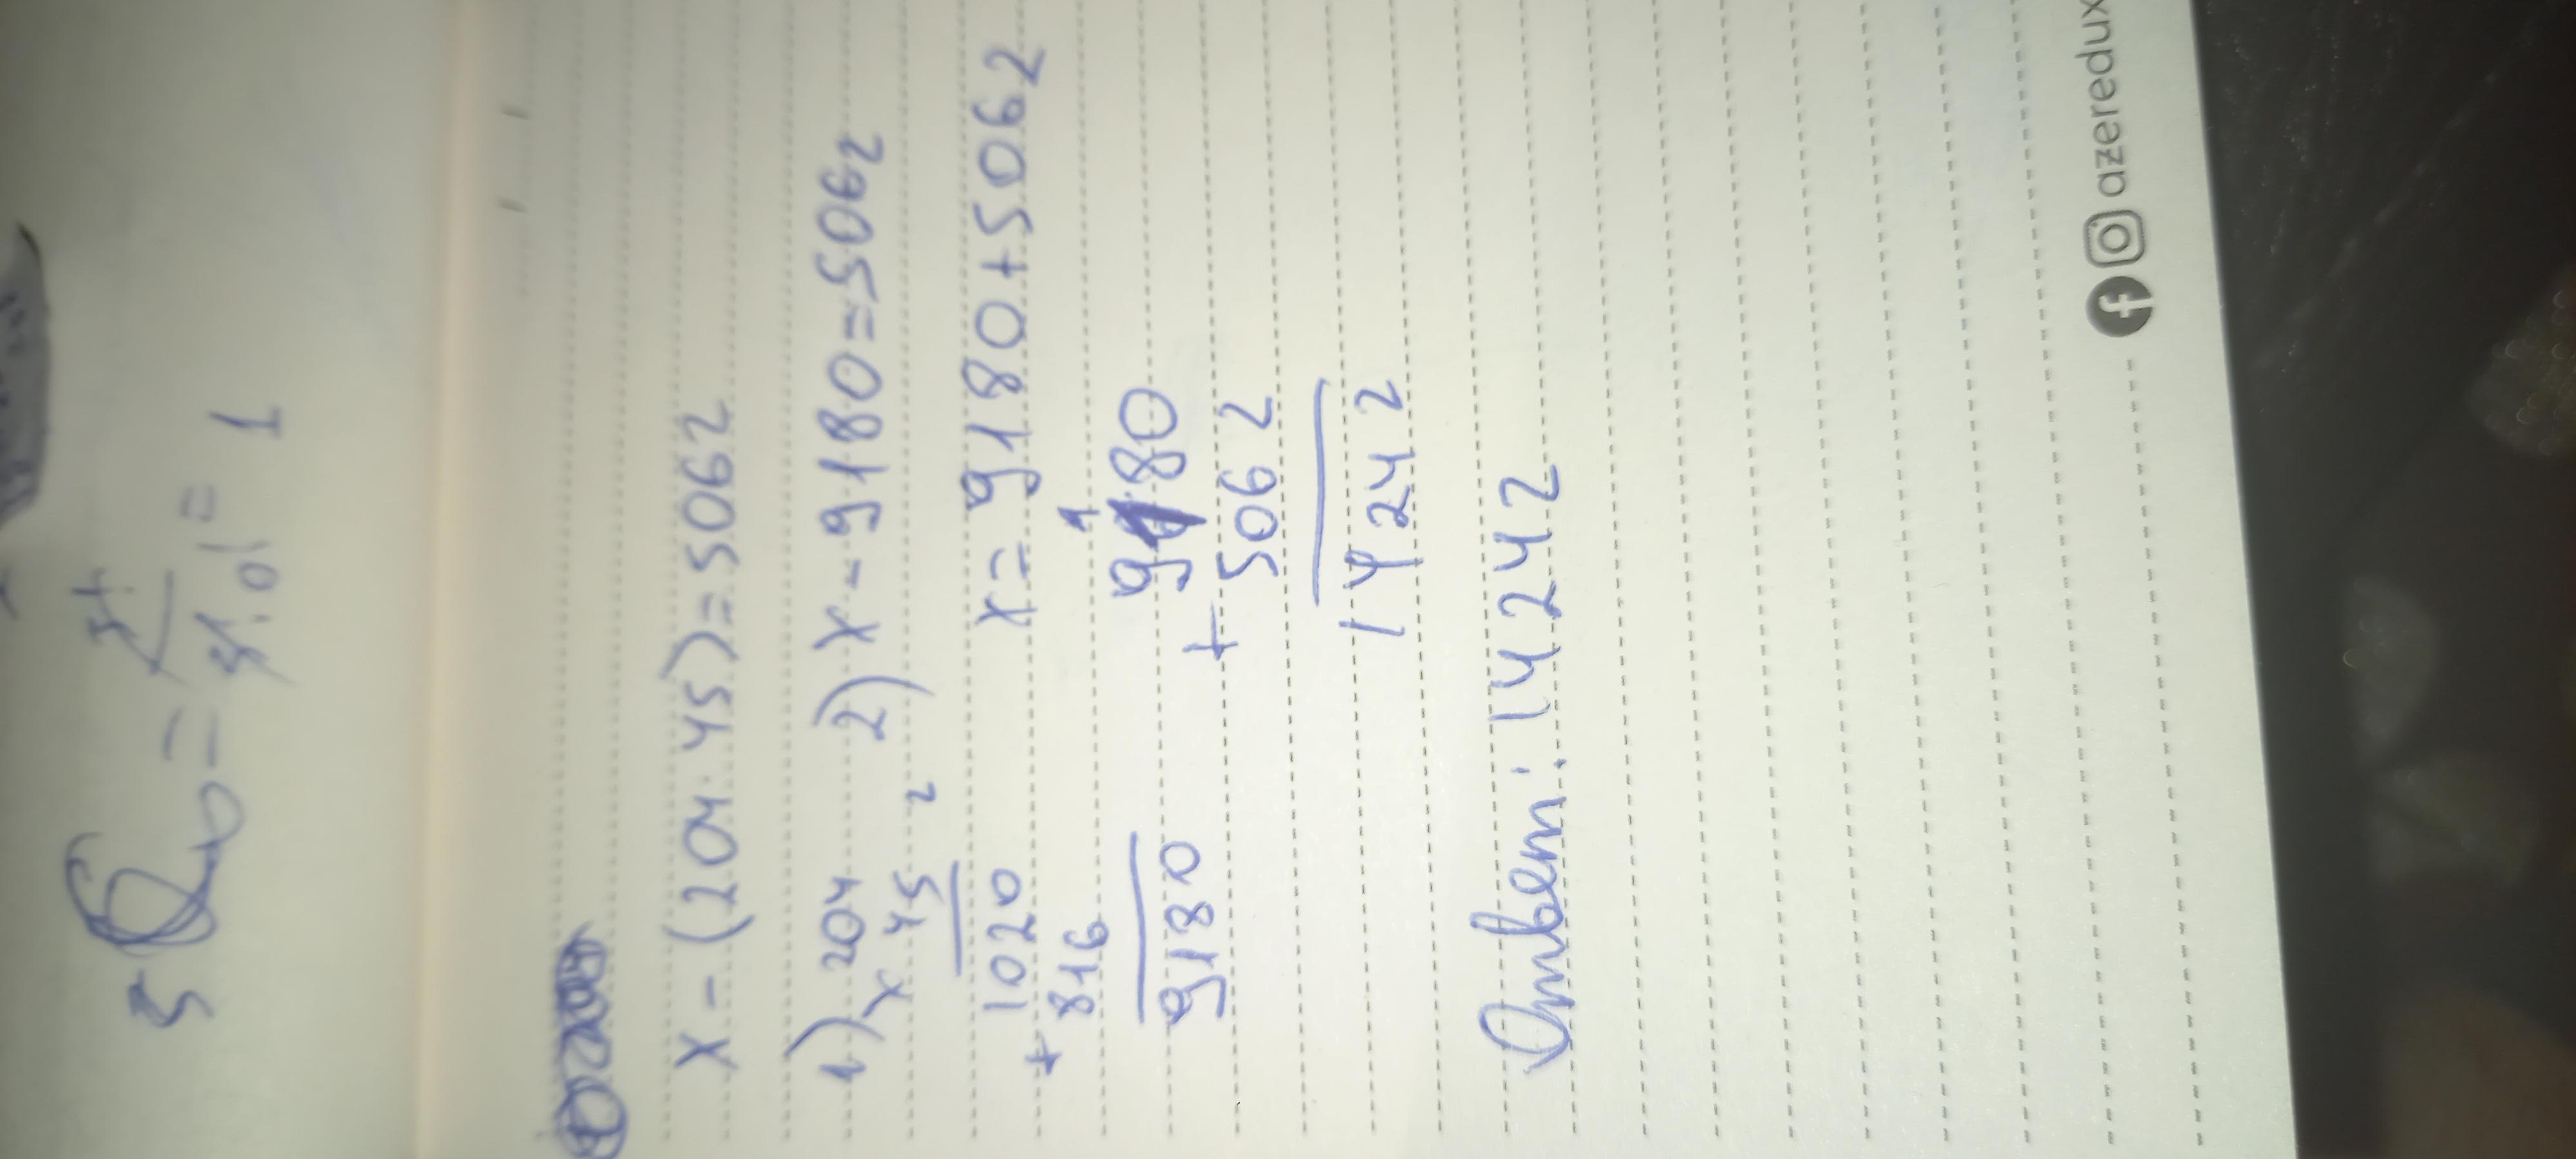 = 1
x - (204 · 45) = 5062
1) 204
x 45
2
1020
+ 816
9180
2) x - 9180 = 5062
x = 9180 + 5062
1
9180
+ 5062
14242
Ответ: 14242
azeredux